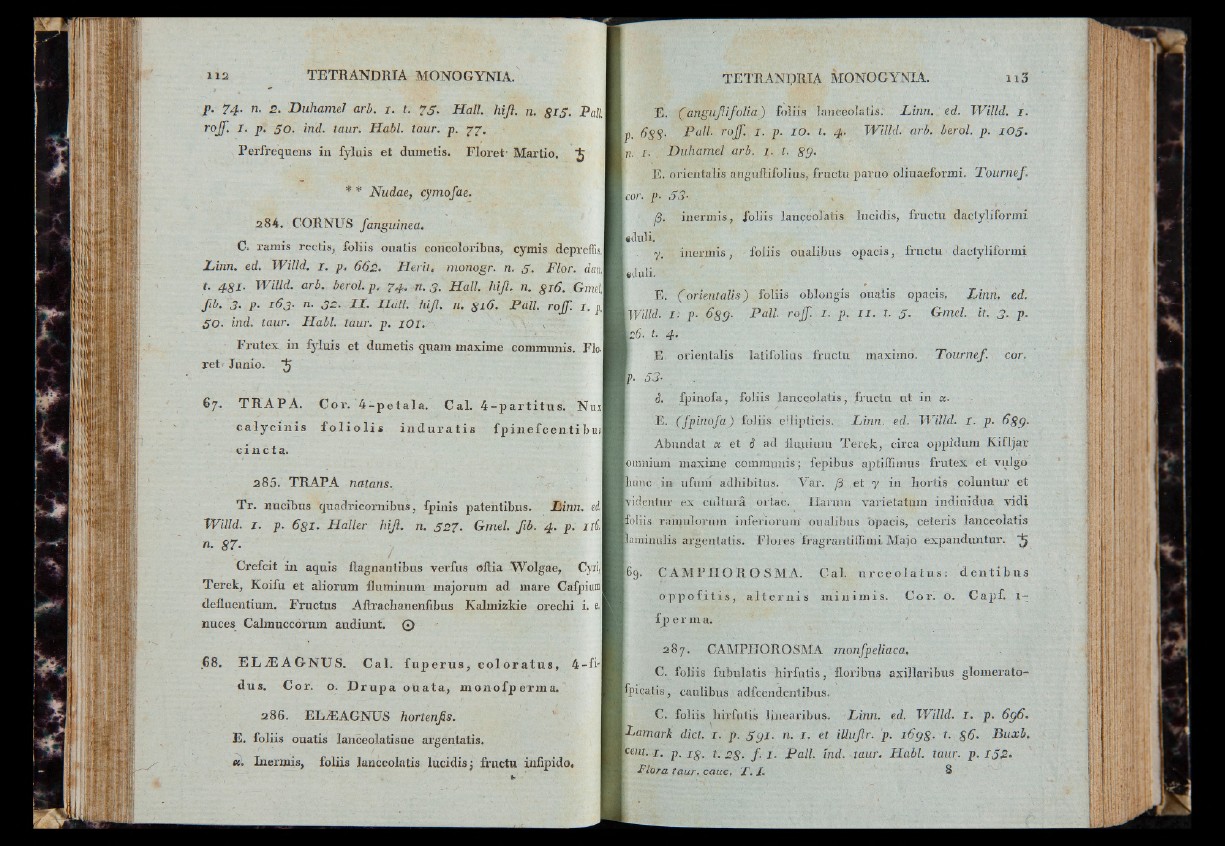 112 TETRANDRIA MONOGYNIA.
p. 74. n. 2. Duhamel arb. 1. t. 75. Hall. hiſt. n. 815. Pall.
roſſ. 1. p. 50. ind. taur. Habl. taur. p. 77.
Perfrequens in ſyluis et dumetis. Floret Martio. ♄
** Nudae, cymoſae.
284. CORNUS ſanguinea.
C. ramis rectis, foliis ouatis concoloribus, cymis depreſſis.
Linn. ed. Willd. 1. p. 662. Herit. monogr. n. 5. Flor. dan.
t. 481. Willd. arb. berol. p. 74. n. 3. Hall. hiſt. n. 816. Gmel.
ſib. 3. p. 163. n. 32. II. Hall. hiſt. n. 816. Pall. roſſ. 1. p.
50. ind. taur. Habl. taur. p. 101.
Frutex in ſyluis et dumetis quam maxime communis. Flo-
ret Junio. ♄
67. TRAPA. Cor. 4-petala. Cal. 4-partitus. Nux
calycinis foliolis induratis ſpineſcentibus
cincta.
285. TRAPA natans.
Tr. nucibus quadricornibus, ſpinis patentibus. Linn. ed.
Willd. 1. p. 681. Haller hiſt. n. 527. Gmel. ſib. 4. p. 116.
n. 87.
Creſcit in aquis ſtagnantibus verſus oſtia Wolgae, Cyri,
Terek, Koiſu et aliorum fluminum majorum ad mare Caſpium
defluentium. Fructus Aſtrachanenſibus Kalmizkie orechi i. e.
nuces Calmuccorum audiunt. ⊙
68. ELÆAGNUS. Cal. ſuperus, coloratus, 4-fi-
dus. Cor. 0. Drupa ouata, monoſperma.
286. ELÆAGNUS hortenſis.
E. foliis ouatis lanceolatisue argentatis.
α. Inermis, foliis lanceolatis lucidis; fructu inſipido.
TETRANDRIA MONOGYNIA. 113
E. (anguſtifolia) foliis lanceolatis. Linn. ed. Willd. 1.
p. 688. Pall. roſſ. 1. p. 10. t. 4. Willd. arb. berol. p. 105.
n. 1. Duhamel arb. 1. t. 89.
E. orientalis anguſtifolius, fructu paruo oliuaeformi. Tournef.
cor. p. 53.
β. inermis, foliis lanceolatis lucidis, fructu dactyliformi
eduli.
γ. inermis, foliis oualibus opacis, fructu dactyliformi
eduli.
E. (orientalis) foliis oblongis ouatis opacis. Linn. ed.
Willd. 1. p. 689. Pall. roſſ. 1. p. 11. t. 5. Gmel. it. 3. p.
26. t. 4.
E orientalis latifolius fructu maximo. Tournef. cor.
p. 53.
δ. ſpinoſa, foliis lanceolatis, fructu ut in α.
E. (ſpinoſa) foliis ellipticis. Linn. ed. Willd. 1. p. 689.
Abundat α et δ ad fluuium Terek, circa oppidum Kiſljar
omnium maxime communis; ſepibus aptiſſimus frutex et vulgo
hunc in uſum adhibitus. Var. β et γ in hortis coluntur et
videntur ex culturâ ortae. Harum varietatum indiuidua vidi
foliis ramulorum inferiorum oualibus opacis, ceteris lanceolatis
laminulis argentatis. Flores fragrantiſſimi Majo expanduntur. ♄
69. CAMPHOROSMA. Cal. urceolatus: dentibus
oppoſitis, alternis minimis. Cor. 0. Capſ. 1-
ſperma.
287. CAMPHOROSMA monſpeliaca.
C. foliis ſubulatis hirſutis, floribus axillaribus glomerato-
ſpicatis, caulibus adſcendentibus.
C. foliis hirſutis linearibus. Linn. ed. Willd. 1. p. 696.
Lamark dict. 1. p. 591. n. 1. et illuſtr. p. 1698. t. 86. Buxb.
cent. 1. p. 18. t. 28. f. 1. Pall. ind. taur. Habl. taur. p. 152.
Flora taur. cauc. T. I. 8